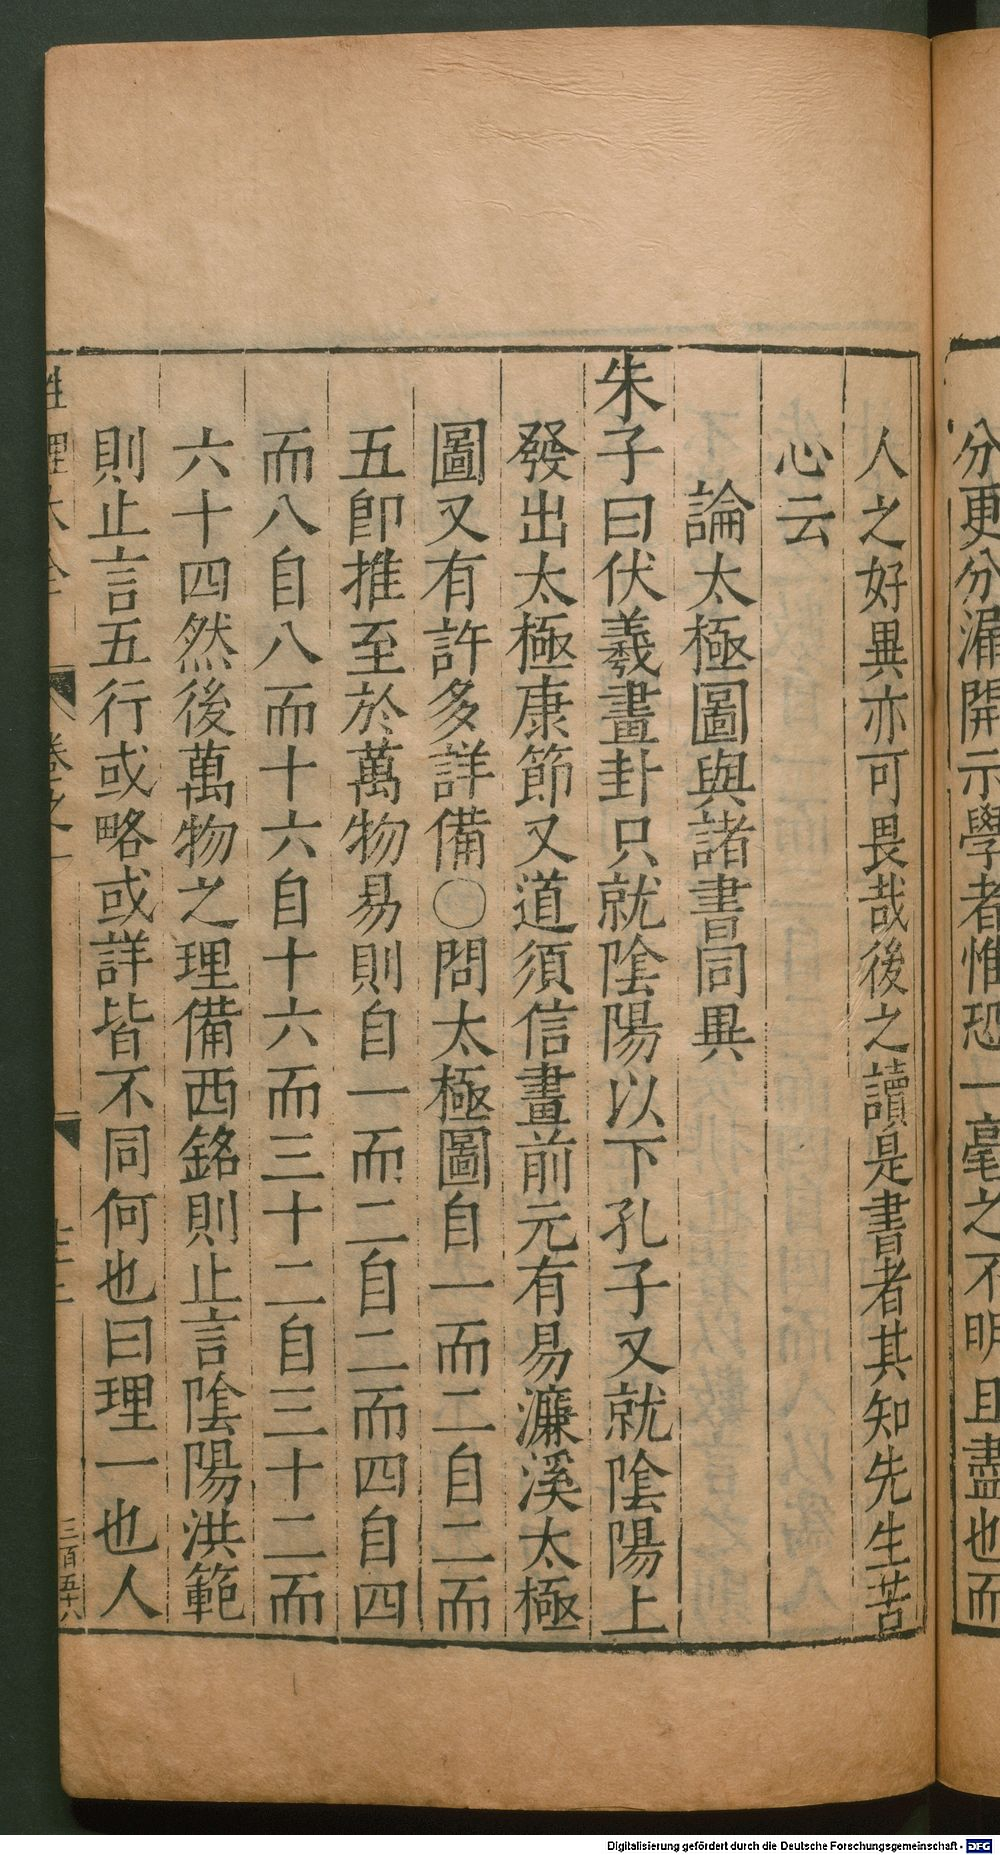 分更分漏開示學者惟恐一毫之不明且盡也而
人之好異亦可畏哉後之讀是書者其知先生苦
心云
論太極圖與諸書同異
朱子曰伏羲畫卦只就陰陽以下孔子又就陰陽上
發出太極康節又道須信畫前元有易濂溪太極
圖又有許多詳備〇問太極圖自一而二自二而
五即推至於萬物易則自一而二自二而四自四
而八自八而十六自十六而三十二自三十二而
六十四然後萬物之理備西銘則止言陰陽洪範
則止言五行或略或詳皆不同何也曰理一也人
性理大全 卷之一
三百五十八
Digitalisierung gefördert durch die Deutsche Forschungsgemeinschaft - DFG